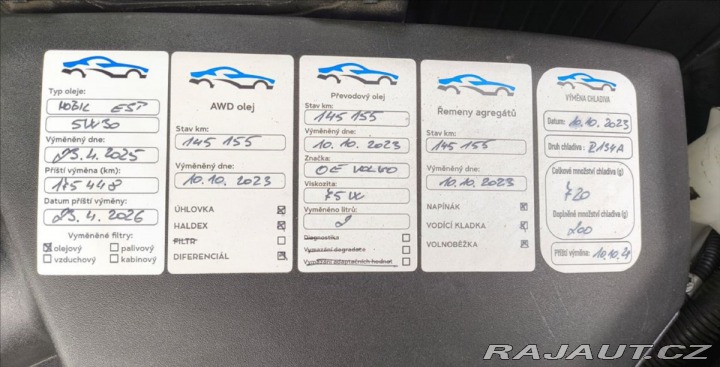 Typ oleje:
MOBIL EST
5W30
Vyměněný dne:
23.4.2025
Příští výměna (km):
175 448
Datum příští výměny:
23.4.2026
Vyměněné filtry:
olejový
palivový
vzduchový
kabinový
AWD olej
Stav km:
145 155
Výměněný dne:
10.10.2023
ÚHLOVKA
HALDEX
FILTR
DIFERENCIÁL
Převodový olej
Stav km:
145 155
Vyměněný dne:
10.10.2023
Značka:
OE VOLVO
Viskozita:
75W
Vyměněno litrů:
2
Diagnostika
Vymazání degradace
Vymazání adaptačních hodnot
Řemeny agregátů
Stav km:
145 155
Výměněný dne:
10.10.2023
NAPÍNÁK
VODÍCÍ KLADKA
VOLNOBĚŽKA
VÝMĚNA CHLADIVA
Datum: 10.10.2023
Druh chladiva: R134A
Celkové množství chladiva (g)
720
Doplněné množství chladiva (g)
200
Příští výměna: 10.10.2
RAJAUT.CZ